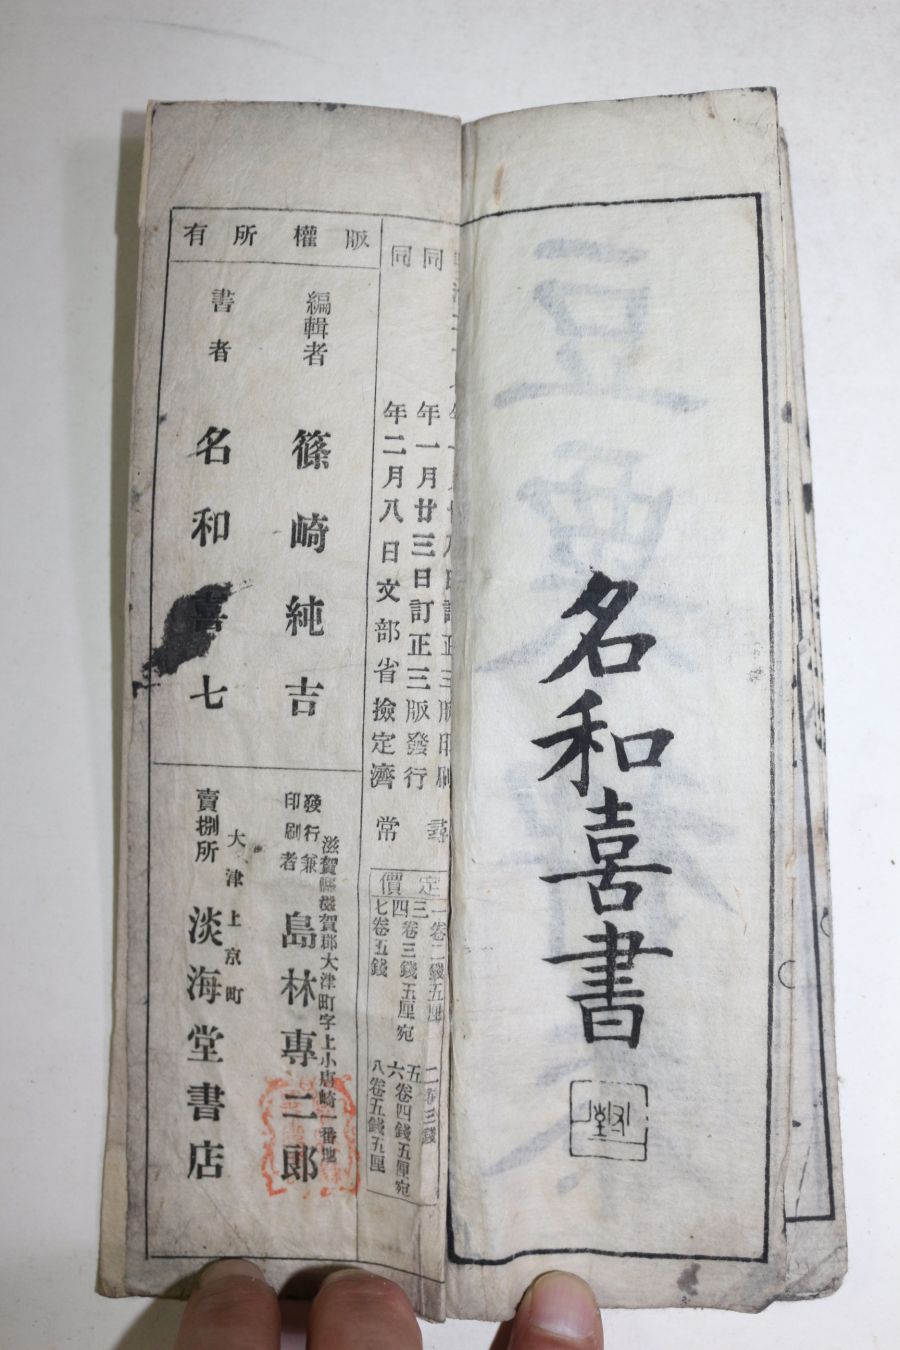 名和喜書
同 年一月廿三日訂正三版發行
同 年二月八日文部省檢定濟
尋常
定價
一卷二錢五厘
二卷三錢
三四卷三錢五厘宛
五六卷四錢五厘宛
七卷五錢
八卷五錢五厘
版權所有
編輯者 篠崎純吉
書者 名和喜七
滋賀縣滋賀郡大津町字上小唐崎一番地
發行兼印刷者 島林專二郎
大津上京町
賣捌所 淡海堂書店